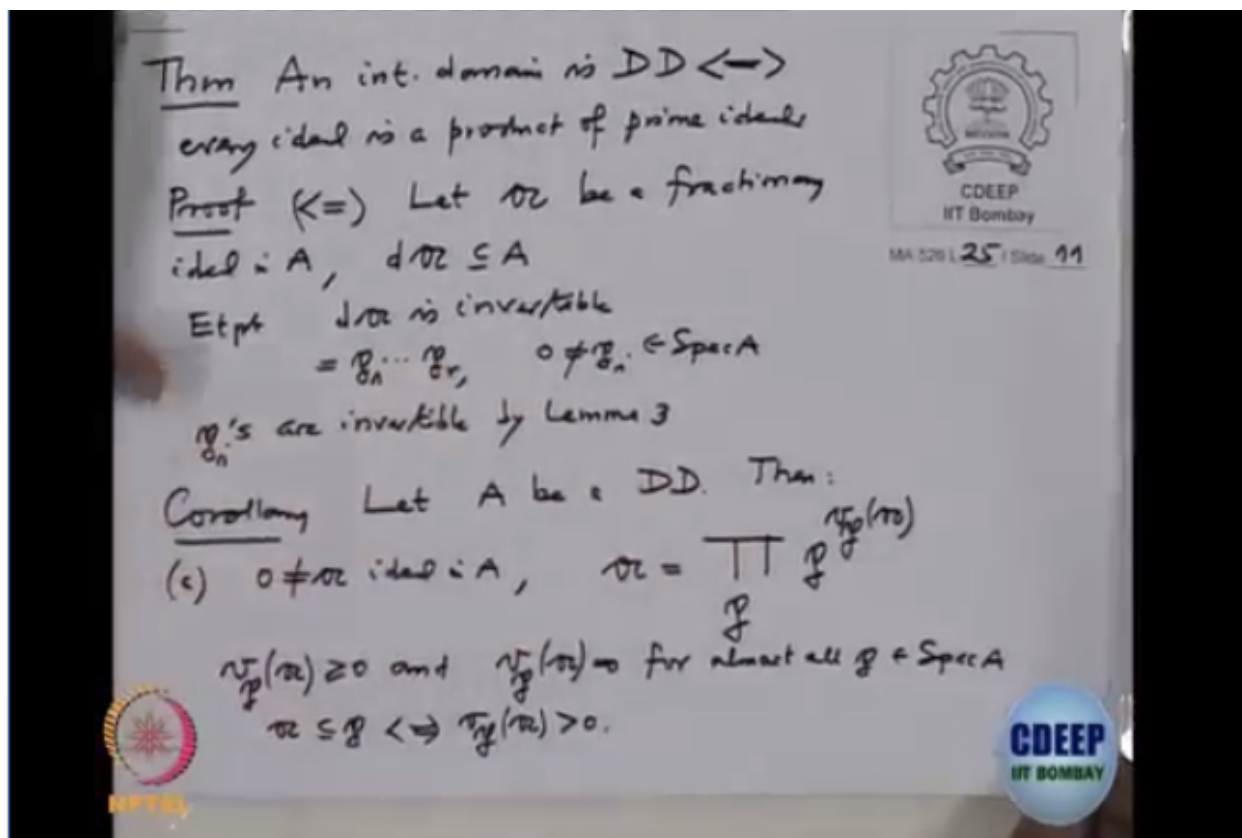 Thm An int. domain is DD <=>
every ideal is a product of prime ideals
Proof (<=) Let 𝔞 be a fractionary
ideal in A, d𝔞 ⊆ A
Etpt d𝔞 is invertible
= 𝔭₁ ... 𝔭ᵣ, 0 ≠ 𝔭ᵢ ∈ Spec A
𝔭ᵢ's are invertible by Lemma 3
Corollary Let A be a DD. Then:
0 ≠ 𝔞 ideal in A, 𝔞 = ∏ 𝔭^{v_𝔭(𝔞)}
𝔭
v_𝔭(𝔞) ≥ 0 and v_𝔭(𝔞) = 0 for almost all 𝔭 ∈ Spec A
𝔞 ⊆ 𝔭 <=> v_𝔭(𝔞) > 0.
CDEEP
IIT Bombay
MA 526 L 25 / Slide 11
NPTEL
CDEEP
IIT BOMBAY